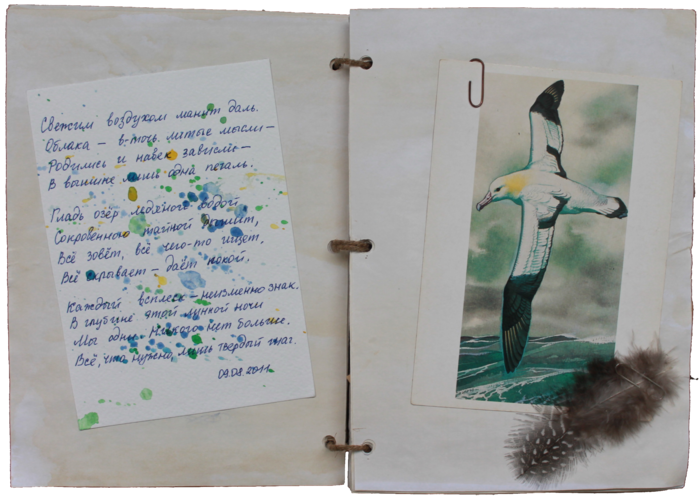 Свежим воздухом манит даль.
Облака – в-точь литые мысли –
Родились и навек зависли –
В вышине лишь одна печаль.
Гладь озёр медленной водой
Сокровенною тайной дышит,
Всё зовёт, всё чего-то ищет,
Всё скрывает – даёт покой.
Каждый всплеск – неизменно знак.
В глубине этой лунной ночи
Мы одни. Никого нет больше.
Всё, что нужно, лишь твёрдый шаг.
09.08.2011